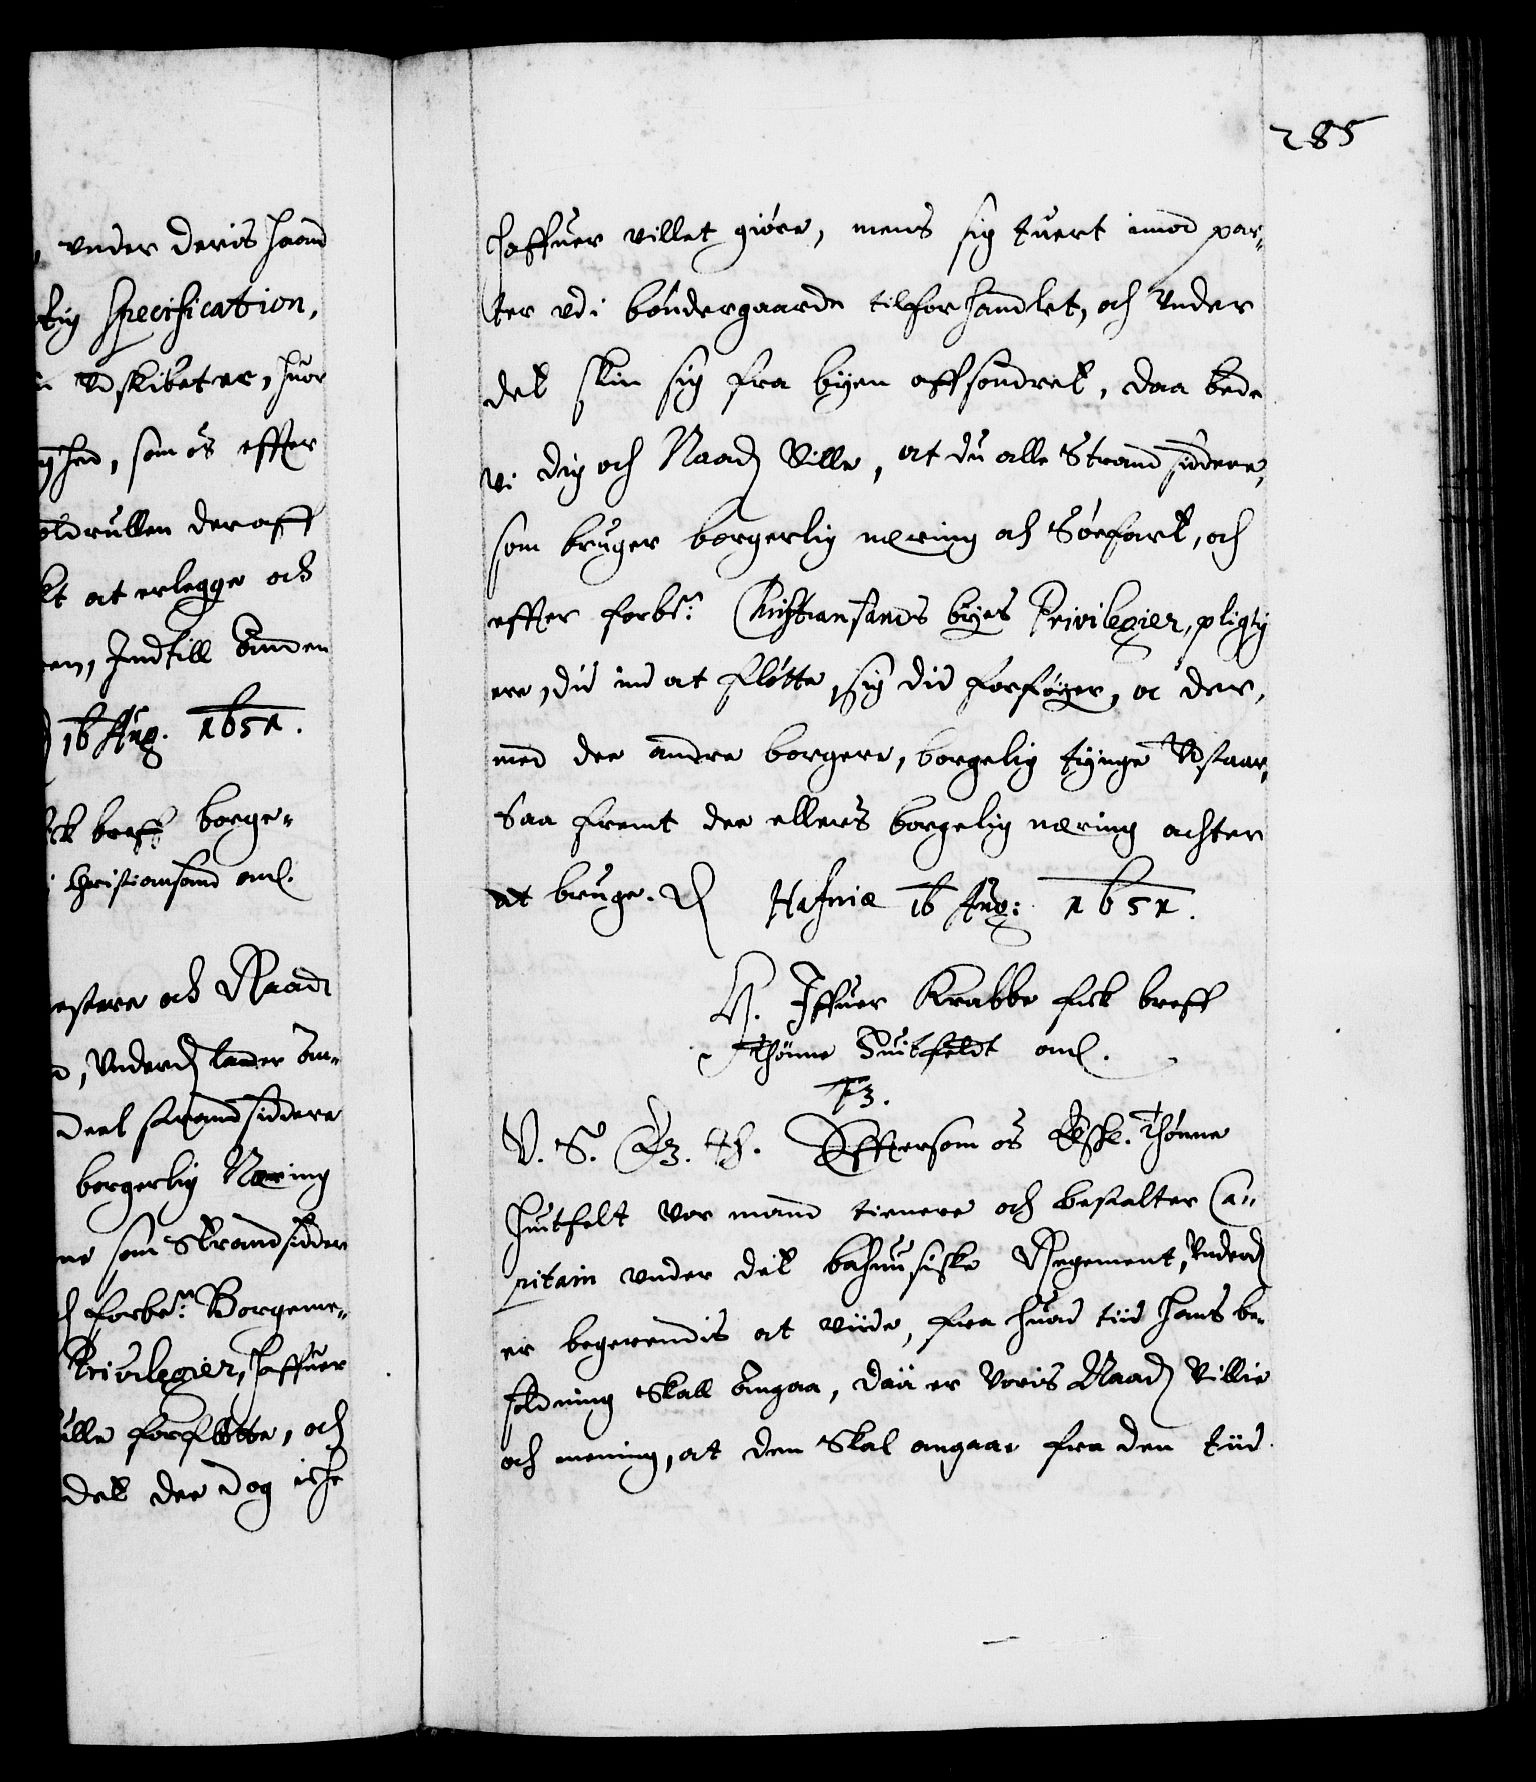 285
vnder deris haand
tig Specification,
vdskibet er, huor
ghed, som os effter
oldrullen deraff
kt at erlegge och
en, Indtill Anden
16 Aug. 1651.
ck breff borge-
Christiansand anl.
estere och Raad
Underd lader an-
deel strandsiddere
borgerlig Næring
ne som Strandsidder
forbe:te Borgeme-
Privilegier, haffuer
ulle forfløtte, och
det dee dog iche
haffuer villet giøre, mens sig tuert imod par-
ter vdi bøndergaarde tilforhandlet, och vnder
det skin sig fra byen affsondret, daa bede
vi dig och Naad Ville, at du alle Strandsiddere,
som bruger borgerlig næring och Søefart, och
effter forbe:te Christiansands byes Privilegier, pligtig
ere, did ind at fløtte, sig did forføyer, oc der,
med dee andre borgere, borgelig tynge Udstaar,
Saa fremt dee ellers borgelig næring achter
at bruge. Hafniæ 16 Aug: 1651.
H. Iffuer Krabbe fick breff
Thønne Huitfeldt anl.
F3.
V. S. G. T. Effersom os Elskl. Thønne
Huitfelt vor mand tienere och bestalter Ca-
pitain vnder det bahusiske Regement, Underd
er begerendis at viide, fra huad tiid hans be-
soldning Skall angaa, daa er Voris Naad Villie
och mening, at den Skal angaae fra den tiid